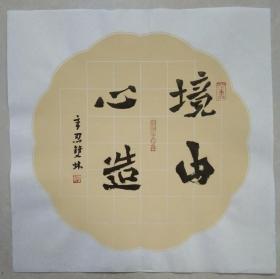 境由
心造
辛丑双林